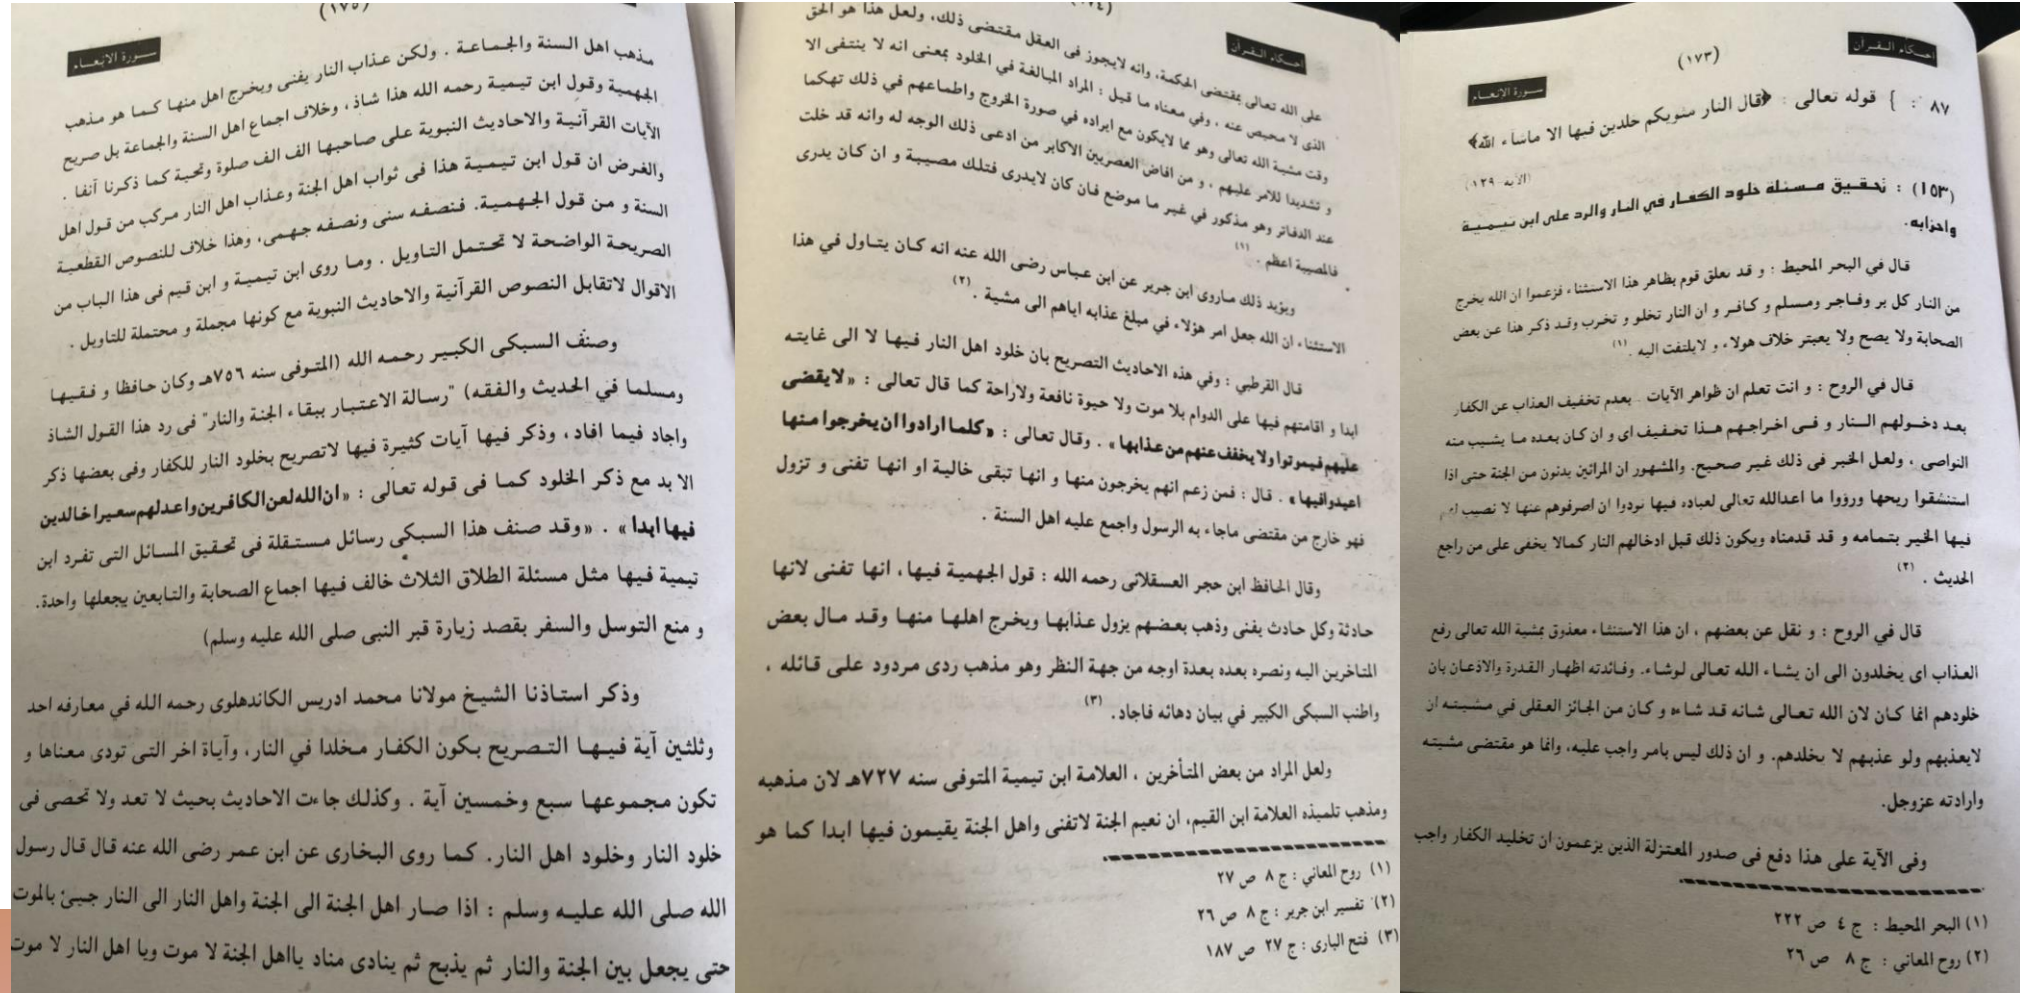 (١٧٣)
احـكام القـرآن
سـورة الانـعـام
٨٧ : } قوله تعالى : ﴿قال النار مثويكم خلدين فيها الا ماشآء الله﴾
(الآية ١٣٩)
(١٥٣) : تحقيق مسئلة خلود الكفار في النار والرد على ابن تيمية
واحزابه.
قال في البحر المحيط : و قد تعلق قوم بظاهر هذا الاستثناء فزعموا ان الله يخرج
من النار كل بر وفاجر ومسلم و كافر و ان النار تخلو و تخرب وقد ذكر هذا عن بعض
الصحابة ولا يصح ولا يعبتر خلاف هولاء و لايلتفت اليه . (١)
قال في الروح : و انت تعلم ان ظواهر الآيات بعدم تخفيف العذاب عن الكفار
بعد دخولهم النار و فى اخراجهم هذا تخفيف اى و ان كان بعده ما يشيب منه
النواصى ، ولعل الخبر فى ذلك غير صحيح. والمشهور ان المرائين يدنون من الجنة حتى اذا
استنشقوا ريحها ورؤوا ما اعدالله تعالى لعباده فيها نودوا ان اصرفوهم عنها لا نصيب لهم
فيها الخبر بتمامه و قد قدمناه ويكون ذلك قبل ادخالهم النار كمالا يخفى على من راجع
الحديث . (٢)
قال في الروح : و نقل عن بعضهم ، ان هذا الاستثناء معذوق بمشية الله تعالى رفع
العذاب اى يخلدون الى ان يشاء الله تعالى لوشاء. وفائدته اظهار القدرة والاذعان بان
خلودهم انما كان لان الله تعالى شانه قد شاءه و كان من الجائز العقلى في مشيته ان
لايعذبهم ولو عذبهم لا يخلدهم. و ان ذلك ليس بامر واجب عليه، وانما هو مقتضى مشيته
وارادته عزوجل.
وفى الآية على هذا دفع فى صدور المعتزلة الذين يزعمون ان تخليد الكفار واجب
(١) البحر المحيط : ج ٤ ص ٢٢٢
(٢) روح المعاني : ج ٨ ص ٢٦
احـكام القـرآن
على الله تعالى بمقتضى الحكمة، وانه لايجوز فى العقل مقتضى ذلك، ولعل هذا هو الحق
الذى لا محيص عنه ، وفي معناه ما قيل : المراد المبالغة في الخلود بمعنى انه لا ينتفى الا
وقت مشية الله تعالى وهو مما لايكون مع ايراده في صورة الخروج واطماعهم في ذلك تهكما
و تشديدا للامر عليهم ، و من افاض العصريين الاكابر من ادعى ذلك الوجه له وانه قد خلت
عند الدفاتر وهو مذكور في غير ما موضع فان كان لايدرى فتلك مصيبة و ان كان يدرى
فالمصيبة اعظم . (١)
ويؤيد ذلك ماروى ابن جرير عن ابن عباس رضى الله عنه انه كان يتاول في هذا
الاستثناء ان الله جعل امر هؤلاء في مبلغ عذابه اياهم الى مشية . (٢)
قال القرطبي : وفي هذه الاحاديث التصريح بان خلود اهل النار فيها لا الى غايته
ابدا و اقامتهم فيها على الدوام بلا موت ولا حيوة نافعة ولاراحة كما قال تعالى : « لايقضى
عليهم فيموتوا ولا يخفف عنهم من عذابها » . وقال تعالى : « كلما ارادوا ان يخرجوا منها
اعيدوا فيها » . قال : فمن زعم انهم يخرجون منها و انها تبقى خالية او انها تفنى و تزول
فهو خارج من مقتضى ماجاء به الرسول واجمع عليه اهل السنة .
وقال الحافظ ابن حجر العسقلانى رحمه الله : قول الجهمية فيها، انها تفنى لانها
حادثة وكل حادث يفنى وذهب بعضهم يزول عذابها ويخرج اهلها منها وقد مال بعض
المتاخرين اليه ونصره بعده بعدة اوجه من جهة النظر وهو مذهب ردى مردود على قائله ،
واطنب السبكى الكبير في بيان دهائه فاجاد. (٣)
ولعل المراد من بعض المتأخرين ، العلامة ابن تيمية المتوفى سنه ٧٢٧هـ لان مذهبه
ومذهب تلميذه العلامة ابن القيم، ان نعيم الجنة لاتفنى واهل الجنة يقيمون فيها ابدا كما هو
(١) روح المعاني : ج ٨ ص ٢٧
(٢) تفسير ابن جرير : ج ٨ ص ٢٦
(٣) فتح البارى : ج ٢٧ ص ١٨٧
(١٧٥)
سـورة الانـعـام
مذهب اهل السنة والجماعة . ولكن عذاب النار يفنى ويخرج اهل منها كما هو مذهب
الجهمية وقول ابن تيمية رحمه الله هذا شاذ ، وخلاف اجماع اهل السنة والجماعة بل صريح
الآيات القرآنية والاحاديث النبوية على صاحبها الف الف صلوة وتحية كما ذكرنا آنفا .
والغرض ان قول ابن تيمية هذا فى ثواب اهل الجنة وعذاب اهل النار مركب من قول اهل
السنة و من قول الجهمية. فنصفه سنى ونصفه جهمى، وهذا خلاف للنصوص القطعية
الصريحة الواضحة لا تحتمل التاويل . وما روى ابن تيمية و ابن قيم فى هذا الباب من
الاقوال لاتقابل النصوص القرآنية والاحاديث النبوية مع كونها مجملة و محتملة للتاويل .
وصنف السبكى الكبير رحمه الله (المتوفى سنه ٧٥٦هـ وكان حافظا و فقيها
ومسلما في الحديث والفقه) "رسالة الاعتبار ببقاء الجنة والنار" فى رد هذا القول الشاذ
واجاد فيما افاد، وذكر فيها آيات كثيرة فيها لاتصريح بخلود النار للكفار وفى بعضها ذكر
الا بد مع ذكر الخلود كما فى قوله تعالى : « ان الله لعن الكافرين واعد لهم سعيرا خالدين
فيها ابدا » . « وقد صنف هذا السبكى رسائل مستقلة فى تحقيق المسائل التى تفرد ابن
تيمية فيها مثل مسئلة الطلاق الثلاث خالف فيها اجماع الصحابة والتابعين يجعلها واحدة.
و منع التوسل والسفر بقصد زيارة قبر النبى صلى الله عليه وسلم)
وذكر استاذنا الشيخ مولانا محمد ادريس الكاندهلوى رحمه الله في معارفه احد
وثلثين آية فيها التصريح بكون الكفار مخلدا في النار، وآياة اخر التى تودى معناها و
تكون مجموعها سبع وخمسين آية . وكذلك جاءت الاحاديث بحيث لا تعد ولا تحصى فى
خلود النار وخلود اهل النار. كما روى البخارى عن ابن عمر رضى الله عنه قال قال رسول
الله صلى الله عليه وسلم : اذا صار اهل الجنة الى الجنة واهل النار الى النار جيئ بالموت
حتى يجعل بين الجنة والنار ثم يذبح ثم ينادى مناد يااهل الجنة لا موت ويا اهل النار لا موت